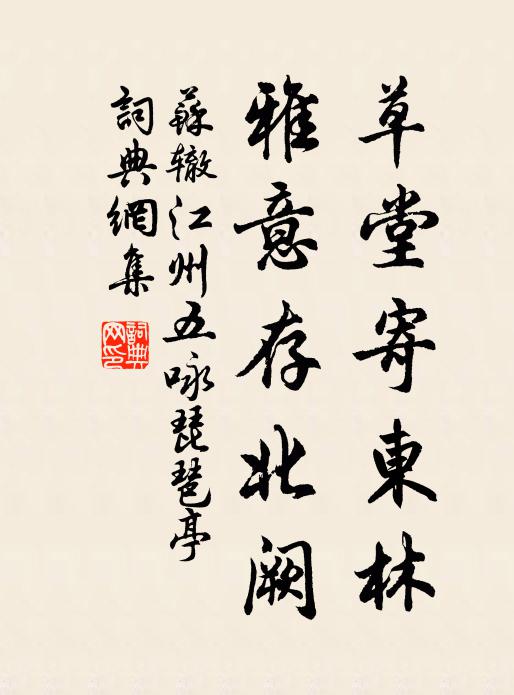 草堂寄東林
雅意存北闕
蘇辙江州五咏琵琶亭
詞典網集
詞典网印